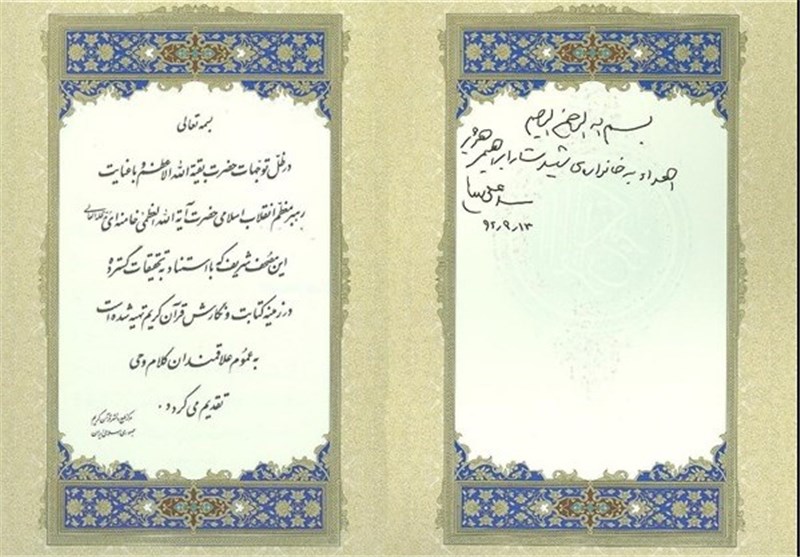 بسم الله الرحمن الرحیم
اهداء به خانواده‌ی شهید ستار ابراهیمی هژیر
سید علی خامنه‌ای
۹۲٫۹٫۱۳
بسمه تعالی
در ظل توجهات حضرت بقیة الله الاعظم و با عنایت
رهبر معظم انقلاب اسلامی حضرت آیة الله العظمی خامنه‌ای مدظله العالی
این مصحف شریف که با استناد به تحقیقات گسترده
در زمینه کتابت و نگارش قرآن کریم تهیه شده است
به عموم علاقمندان کلام وحی
تقدیم می گردد.
مرکز طبع و نشر قرآن کریم
جمهوری اسلامی ایران